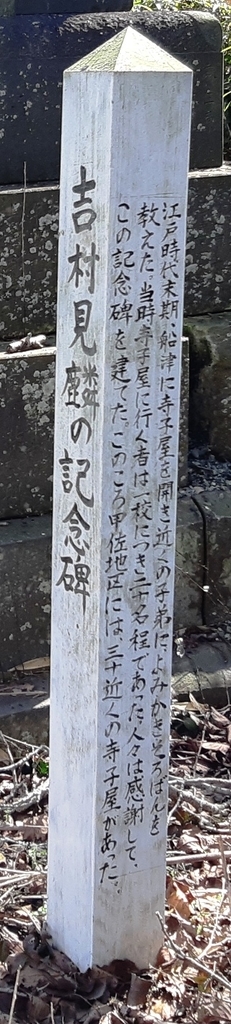 吉村見麟の記念碑
江戸時代末期、船津に寺子屋を開き近くの子弟によみかきそろばんを
教えた。当時寺子屋に行く者は一校につき二十名程であった。人々は感謝して、
この記念碑を建てた。このころ甲佐地区には、三十近くの寺子屋があった。